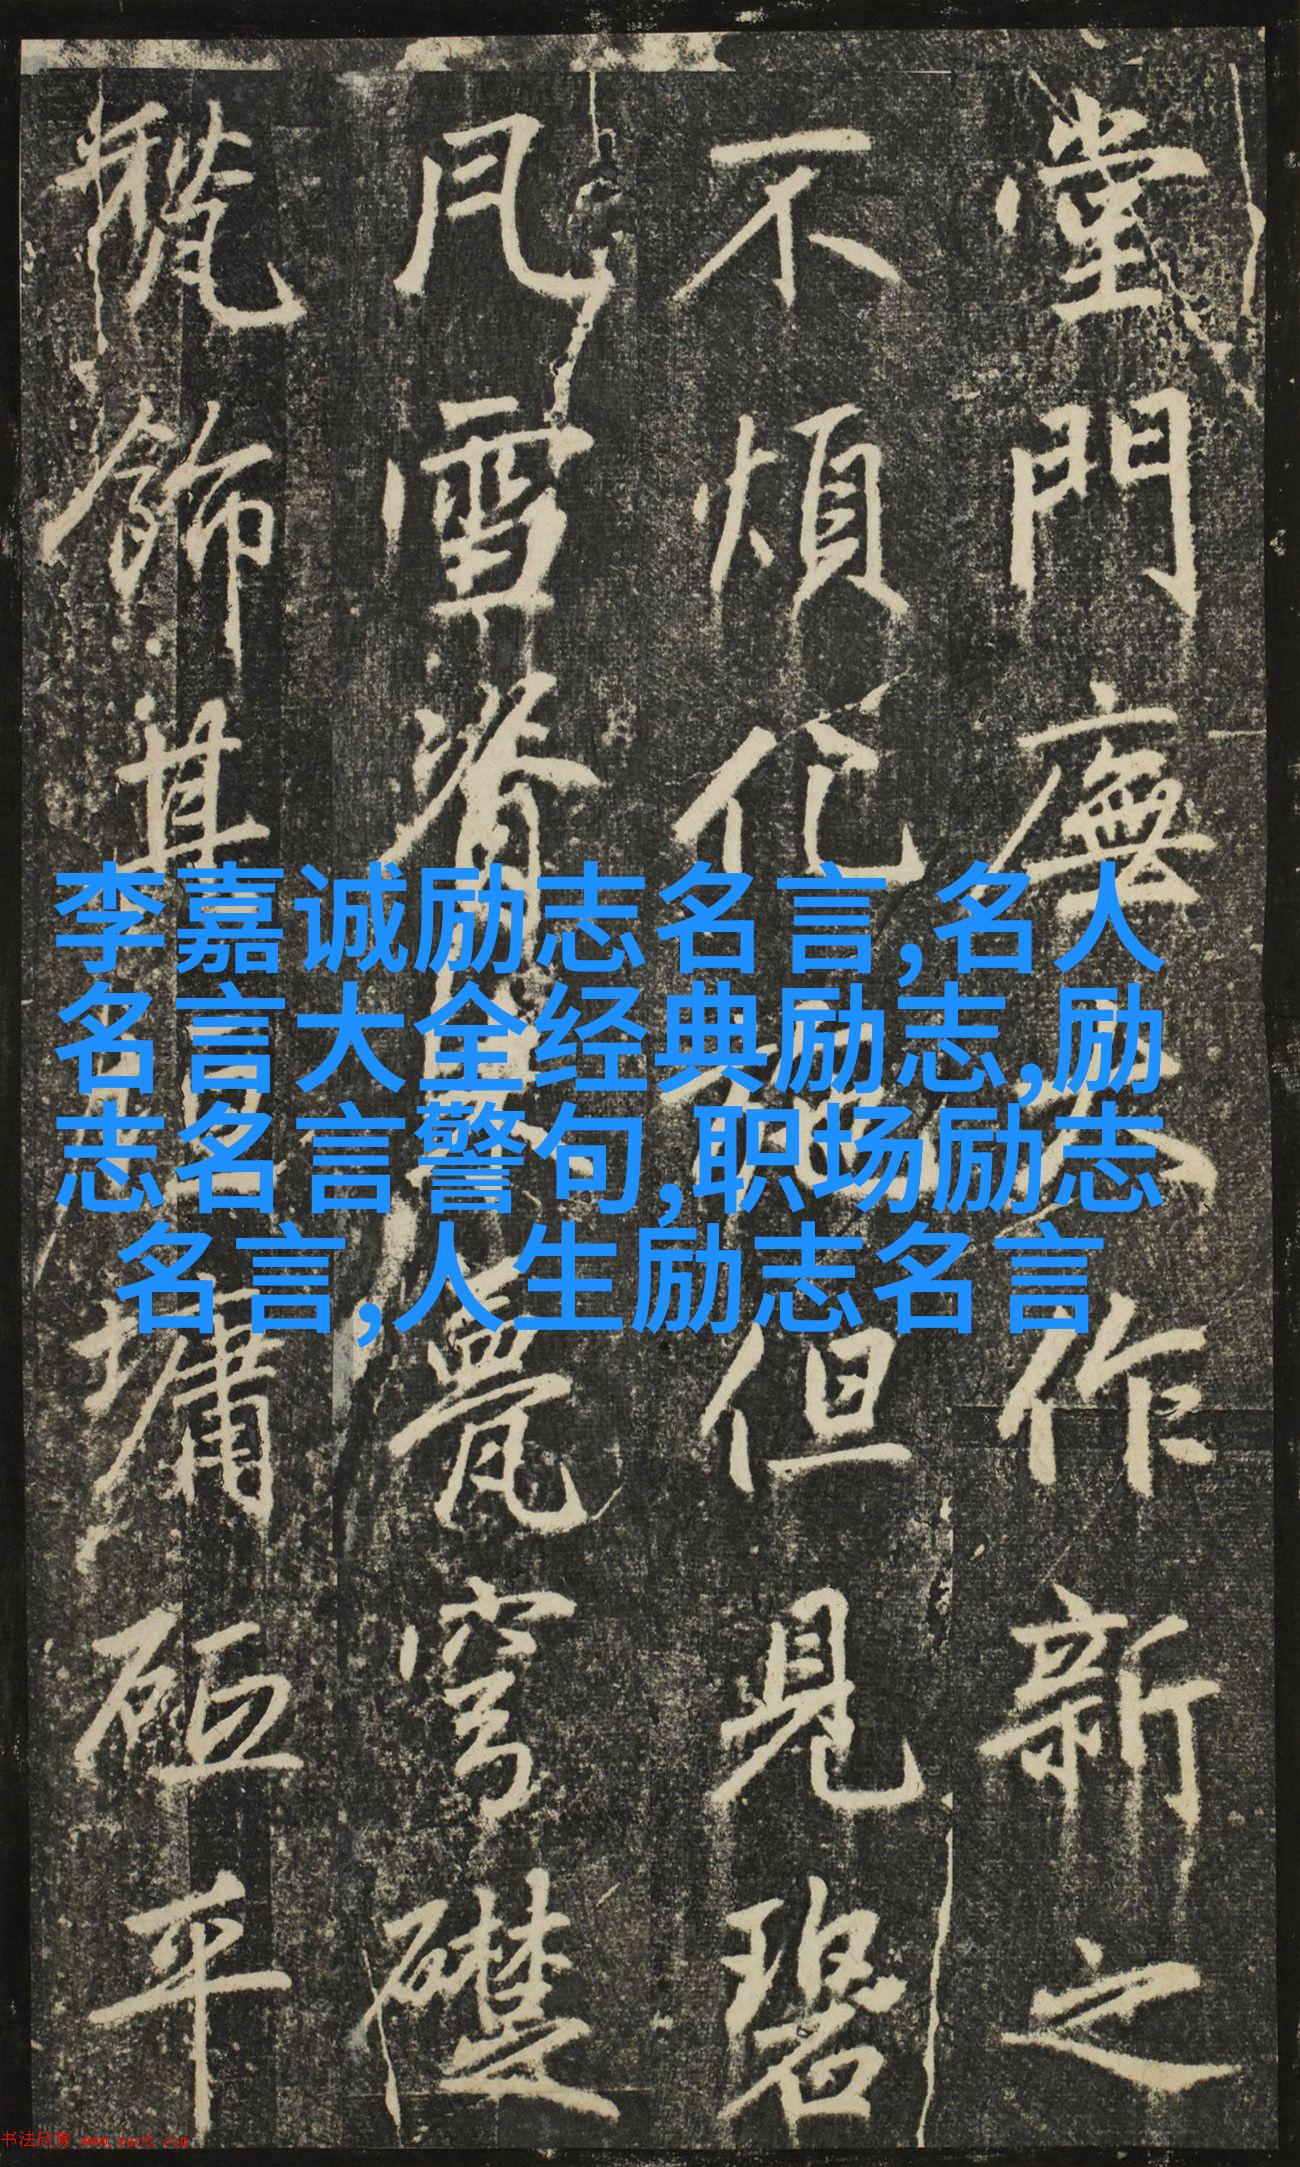 堂門廡作新之
不煩化但見碧
雪甍穹礎
飾其墉砠平
李嘉诚励志名言,名人
名言大全经典励志,励
志名言警句,职场励志
名言,人生励志名言
书法欣赏 www.yac8.com